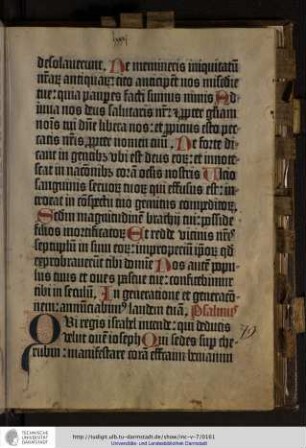 desolaverunt. Ne memineris iniquitatū
nr̄aꝝ antiquaꝝ: cito anticipēt nos misc̄die
tue: quia paupes facti sumus nimis Ad
iuua nos deus salutaris nr̄: et ꝓpter gl̄iam
noīs tui dn̄e libera nos: et ꝓpicius esto pec
catis nr̄is ꝓpter nomen tuū. Ne forte di
cant in gentibꝫ vbi est deus eoꝝ: et innotes
cat in nacōnibꝫ corā oclis nostris Ulcio
sanguinis seruoꝝ tuoꝝ qui effusus est: in
troeat in cōspectu tuo gemitus compeditoꝝ.
Scdm magnitudinē brachij tui: posside
filios mortificatoꝝ Et redde vicinis nr̄is
septuplū in sinu eoꝝ: improperiū ip̄oꝝ qd
exprobrauerūt tibi domie Nos autē popu
lus tuus et oues pascue tue: confitebimur
tibi in seculū. In generatione et generacō
nem: annūciabimꝰ laudem tuā. Psalmus
Qui regis israhel intende: qui deducis
velut ouem ioseph Qui sedes sup che
rubin: manifestare corā effraim beniamin
79
TECHNISCHE
UNIVERSITÄT
DARMSTADT
http://tudigit.ulb.tu-darmstadt.de/show/inc-v-7/0161
Universitäts- und Landesbibliothek Darmstadt